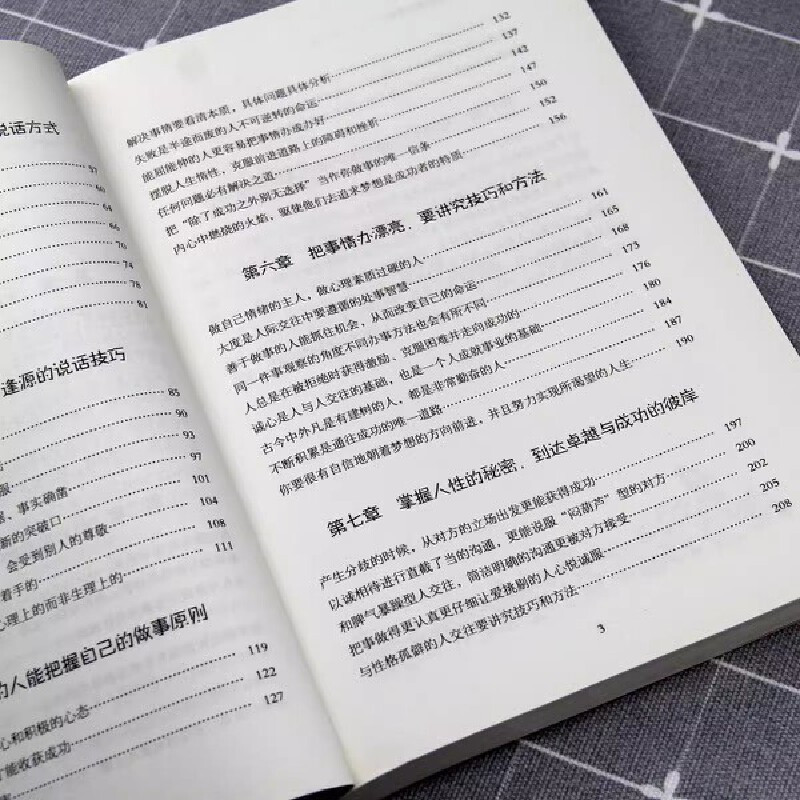 说话方式
57
60
64
68
70
74
78
81
逢源的说话技巧
85
90
服 93
、事实确凿 97
新的突破口 101
会受到别人的尊敬 104
着手的 108
心理上的而非生理上的 111
的人能把握自己的做事原则
119
心和积极的心态 122
才能收获成功 127
解决事情要看清本质，具体问题具体分析 132
失败是半途而废的人不可逆转的命运 137
能屈能伸的人更容易把事情办成办好 142
摆脱人生惰性，克服前进道路上的障碍和挫折 147
任何问题必有解决之道 150
把“除了成功之外别无选择”当作你做事的唯一信条 152
内心中燃烧的火焰，驱使他们去追求梦想是成功者的特质 156
第六章 把事情办漂亮，要讲究技巧和方法
做自己情绪的主人，做心理素质过硬的人 161
大度是人际交往中要遵源的处事智慧 165
善于做事的人能抓住机会，从而改变自己的命运 168
同一件事观察的角度不同办事方法也会有所不同 173
人总是在被拒绝时获得激励，克服困难并走向成功的 176
诚心是人与人交往的基础，也是一个人成就事业的基础 180
古今中外凡是有建树的人，都是非常勤奋的人 184
不断积累是通往成功的唯一道路 187
你要很有自信地朝着梦想的方向前进，并且努力实现所渴望的人生 190
第七章 掌握人性的秘密，到达卓越与成功的彼岸
产生分歧的时候，从对方的立场出发更能获得成功 197
以诚相待进行直截了当的沟通，更能说服“闷葫芦”型的对方 200
和脾气暴躁型人交往，简洁明确的沟通更被对方接受 202
把事做得更认真更仔细让爱挑剔的人心悦诚服 205
与性格孤僻的人交往要讲究技巧和方法 208
3